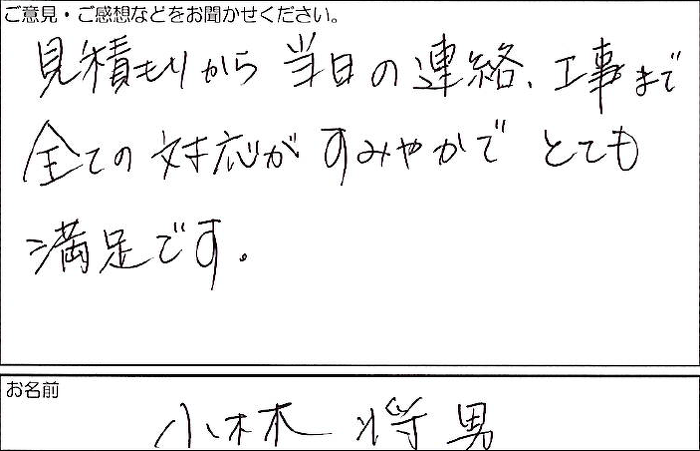 ご意見・ご感想などをお聞かせください。
見積もりから当日の連絡、工事まで
全ての対応がすみやかでとても
満足です。
お名前
小林 将男